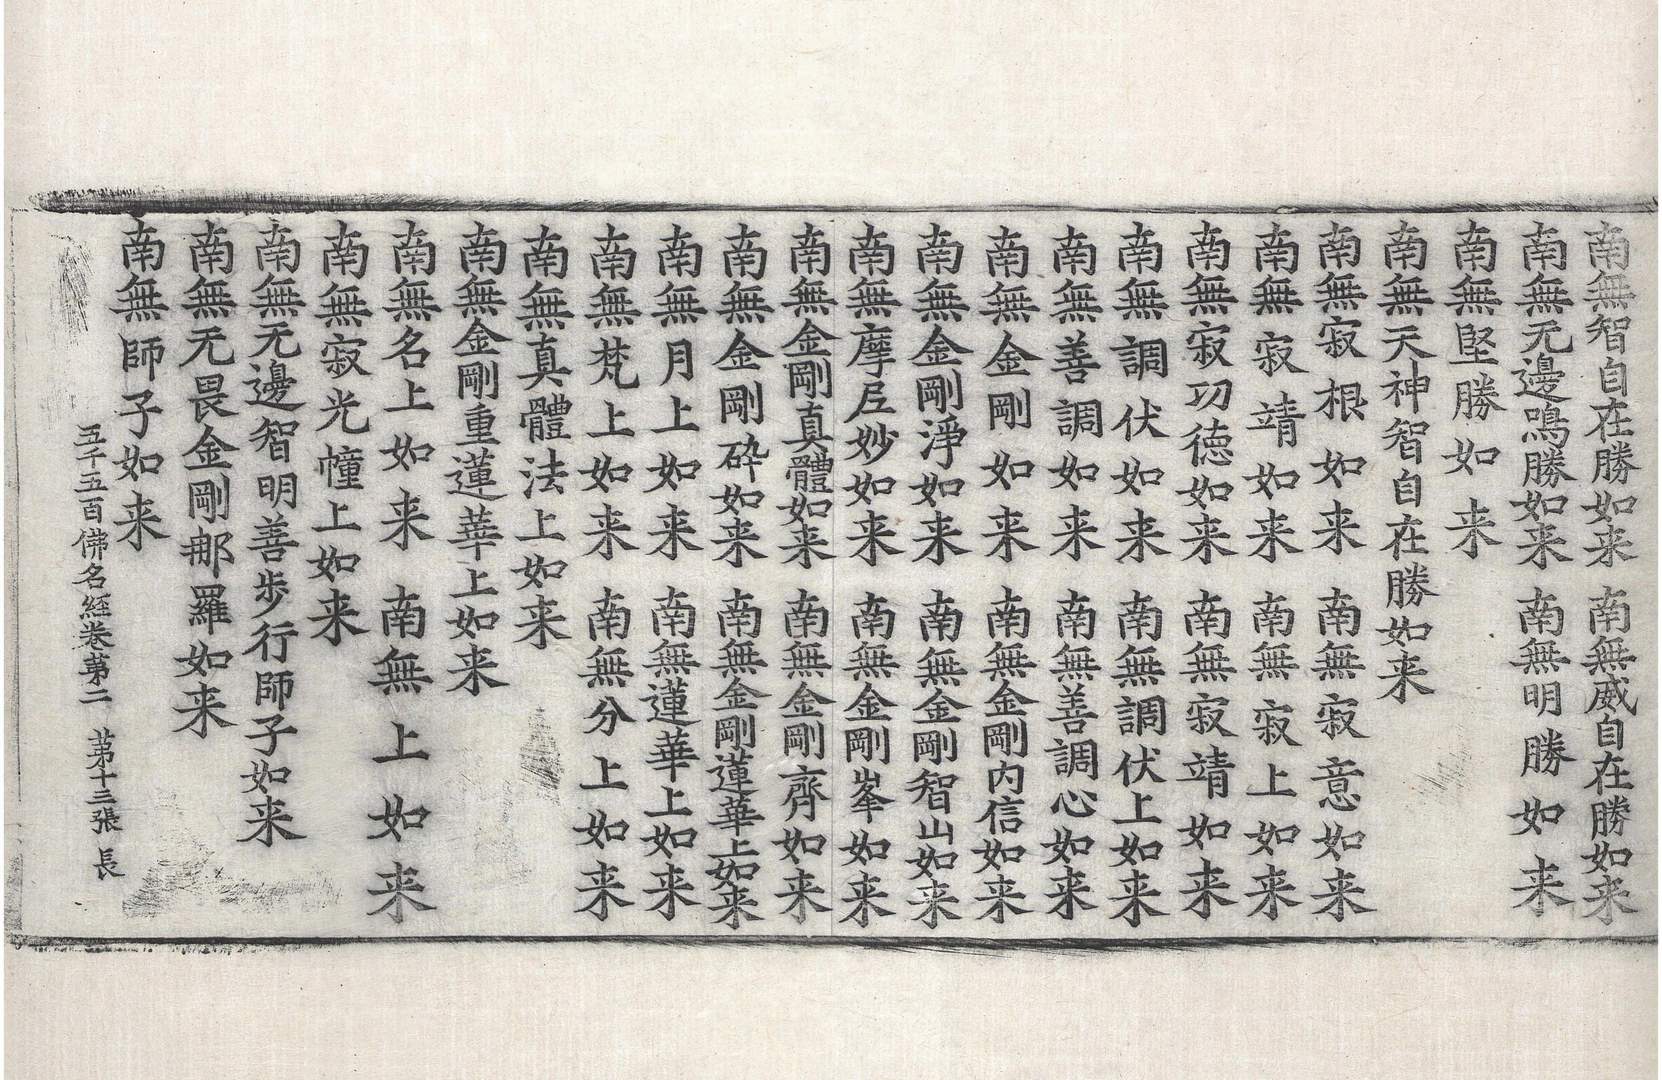 南無智自在勝如来 南無威自在勝如来
南無无邊鳴勝如来 南無明勝如来
南無堅勝如来
南無天神智自在勝如来
南無寂根如来 南無寂意如来
南無寂靖如来 南無寂上如来
南無寂功德如来 南無寂靖如来
南無調伏如来 南無調伏上如来
南無善調如来 南無善調心如来
南無金剛如来 南無金剛内信如来
南無金剛淨如来 南無金剛智山如来
南無摩尼妙如来 南無金剛峯如来
南無金剛真體如来 南無金剛齊如来
南無金剛碎如来 南無金剛蓮華上如来
南無月上如来 南無蓮華上如来
南無梵上如来 南無分上如来
南無真體法上如来
南無金剛重蓮華上如来
南無名上如来 南無上如来
南無寂光幢上如来
南無无邊智明善步行師子如来
南無无畏金剛那羅如来
南無師子如来
五千五百佛名經卷第二 第十三張 長